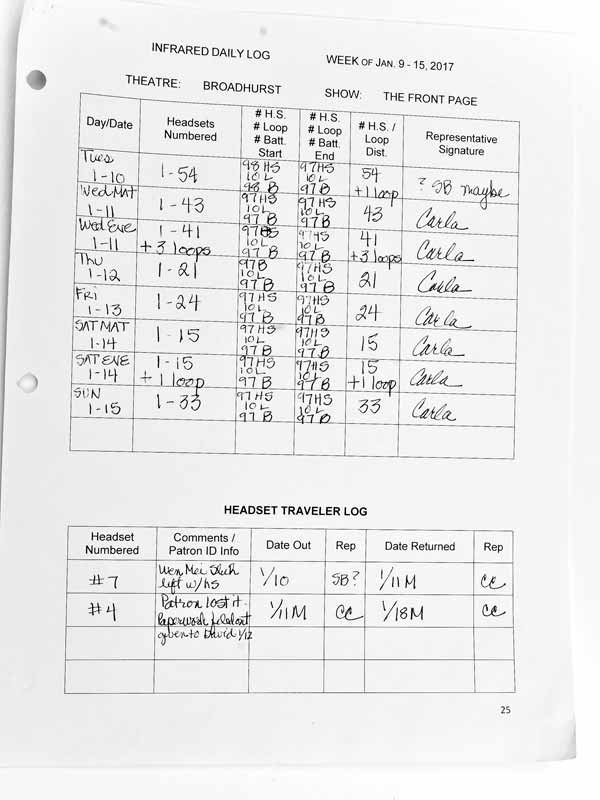 INFRARED DAILY LOG WEEK OF JAN. 9 - 15, 2017
THEATRE: BROADHURST SHOW: THE FRONT PAGE
Day/Date Headsets Numbered # H.S. # Loop # Batt. Start # H.S. # Loop # Batt. End # H.S. / Loop Dist. Representative Signature
Tues 1-10 1-54 98 HS 10 L 98 B 97 HS 10 L 97 B 54 +1 loop ? SB maybe
Wed MAT 1-11 1-43 97 HS 10 L 97 B 97 HS 10 L 97 B 43 Carla
Wed Eve 1-11 1-41 +3 loops 97 HS 10 L 97 B 97 HS 10 L 97 B 41 +3 loops Carla
Thu 1-12 1-21 97 B 10 L 97 B 97 HS 10 L 97 B 21 Carla
Fri 1-13 1-24 97 HS 10 L 97 B 97 HS 10 L 97 B 24 Carla
SAT MAT 1-14 1-15 97 HS 10 L 97 B 97 HS 10 L 97 B 15 Carla
SAT EVE 1-14 1-15 +1 loop 97 HS 10 L 97 B 97 HS 10 L 97 B 15 +1 loop Carla
SUN 1-15 1-33 97 HS 10 L 97 B 97 HS 10 L 97 B 33 Carla
HEADSET TRAVELER LOG
Headset Numbered Comments / Patron ID Info Date Out Rep Date Returned Rep
#7 Wen Mei left w/HS 1/10 SB? 1/11M CC
#4 Patron lost it. Paperwork given to David 1/12 1/11M CC 1/18M CC
25